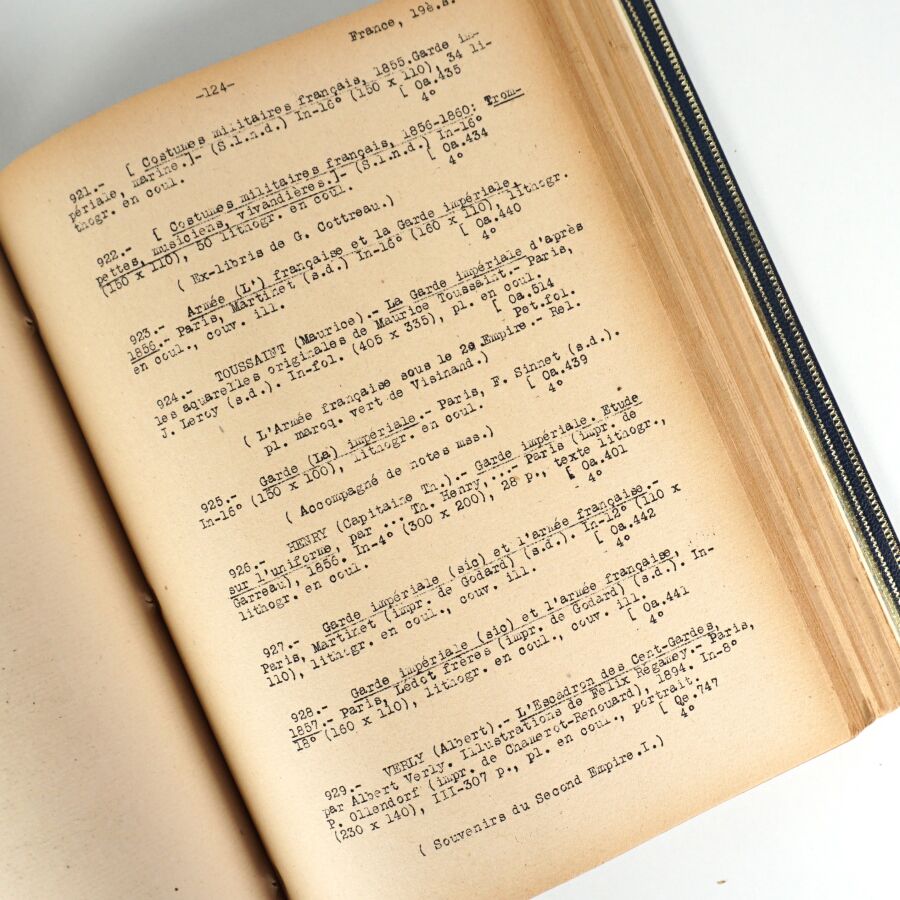 -124-
France, 19è.s.
921.- [ Costumes militaires français, 1855. Garde im-
périale, marine.]- (S.l.n.d.) In-16° (150 x 110), 34 li-
thogr. en coul.
[ Oa.435
4°
922.- [ Costumes militaires français, 1856-1860: Trom-
pettes, musiciens, vivandières.]- (S.l.n.d.) In-16°
(150 x 110), 50 lithogr. en coul.
[ Oa.434
4°
( Ex-libris de G. Cottreau.)
923.- Armée (L') française et la Garde impériale,
1856.- Paris, Martinet (s.d.) In-16° (160 x 110), lithogr.
en coul., couv. ill.
[ Oa.440
4°
924.- TOUSSAINT (Maurice).- La Garde impériale d'après
les aquarelles originales de Maurice Toussaint.- Paris,
J. Leroy (s.d.). In-fol. (405 x 335), pl. en coul.
[ Oa.514
Pet.fol.
( L'Armée française sous le 2e Empire.- Rel.
pl. maroq. vert de Visinand.)
925.- Garde (La) impériale.- Paris, F. Sinnet (s.d.).
In-16° (150 x 100), lithogr. en coul.
[ Oa.439
4°
( Accompagné de notes mss.)
926.- HENRY (Capitaine Th.).- Garde impériale. Etude
sur l'uniforme, par ... Th. Henry,...- Paris (impr. de
Garreau), 1856. In-4° (300 x 200), 28 p., texte lithogr.,
lithogr. en coul.
[ Oa.401
4°
927.- Garde impériale (sic) et l'armée française.-
Paris, Martinet (impr. de Godard) (s.d.). In-12° (110 x
110), lithogr. en coul., couv. ill.
[ Oa.442
4°
928.- Garde impériale (sic) et l'armée française,
1857.- Paris, Lédot frères (impr de Godard) (s.d.). In-
18° (160 x 110), lithogr. en coul., couv. ill.
[ Oa.441
4°
929.- VERLY (Albert).- L'Escadron des Cent-Gardes,
par Albert Verly. Illustrations de Félix Régamey.- Paris,
P. Ollendorf (impr. de Chamerot-Renouard), 1894. In-8°
(230 x 140), III-307 p., pl. en coul., portrait.
[ Qe.747
4°
( Souvenirs du Second Empire.I.)